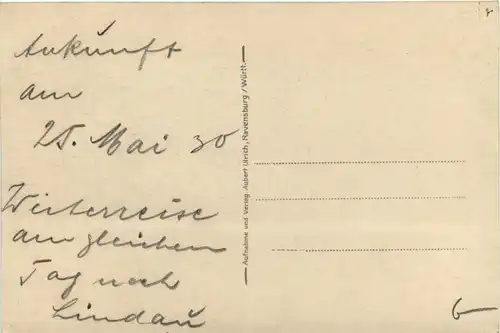 Ankunft
am
25. Mai 30
Weiterreise
am gleichen
Tag nach
Lindau
Aufnahme und Verlag Aubert Ulrich, Ravensburg/Württ.
6-